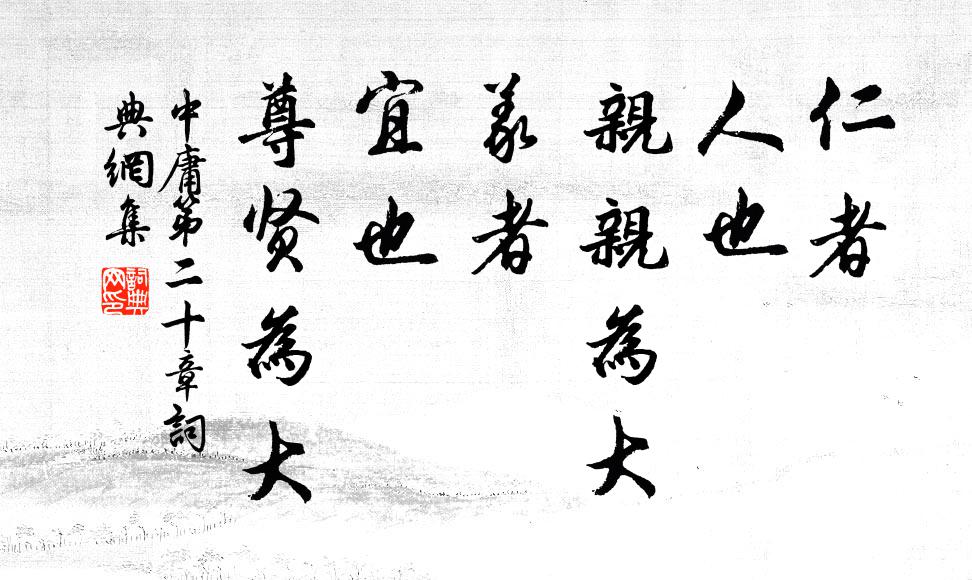 仁者
人也
親親為大
義者
宜也
尊贤為大
中庸第二十章詞
典網集
詞典
网印